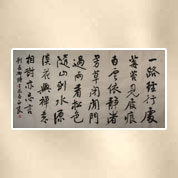 一路經行處
莓苔見履痕
白雲依靜渚
芳草閉閑門
過雨看松色
隨山到水源
溪花與禪意
相對亦忘言